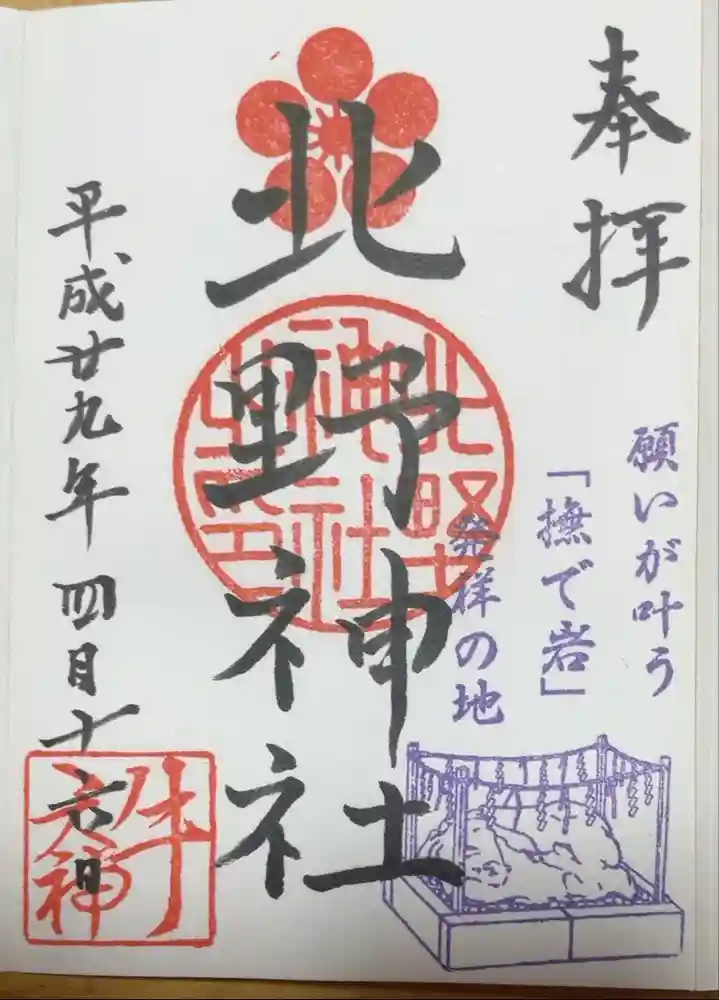 奉拝
願いが叶う
「撫で岩」
発祥の地
北野神社
北野神社
平成廿九年四月十六日
牛天神